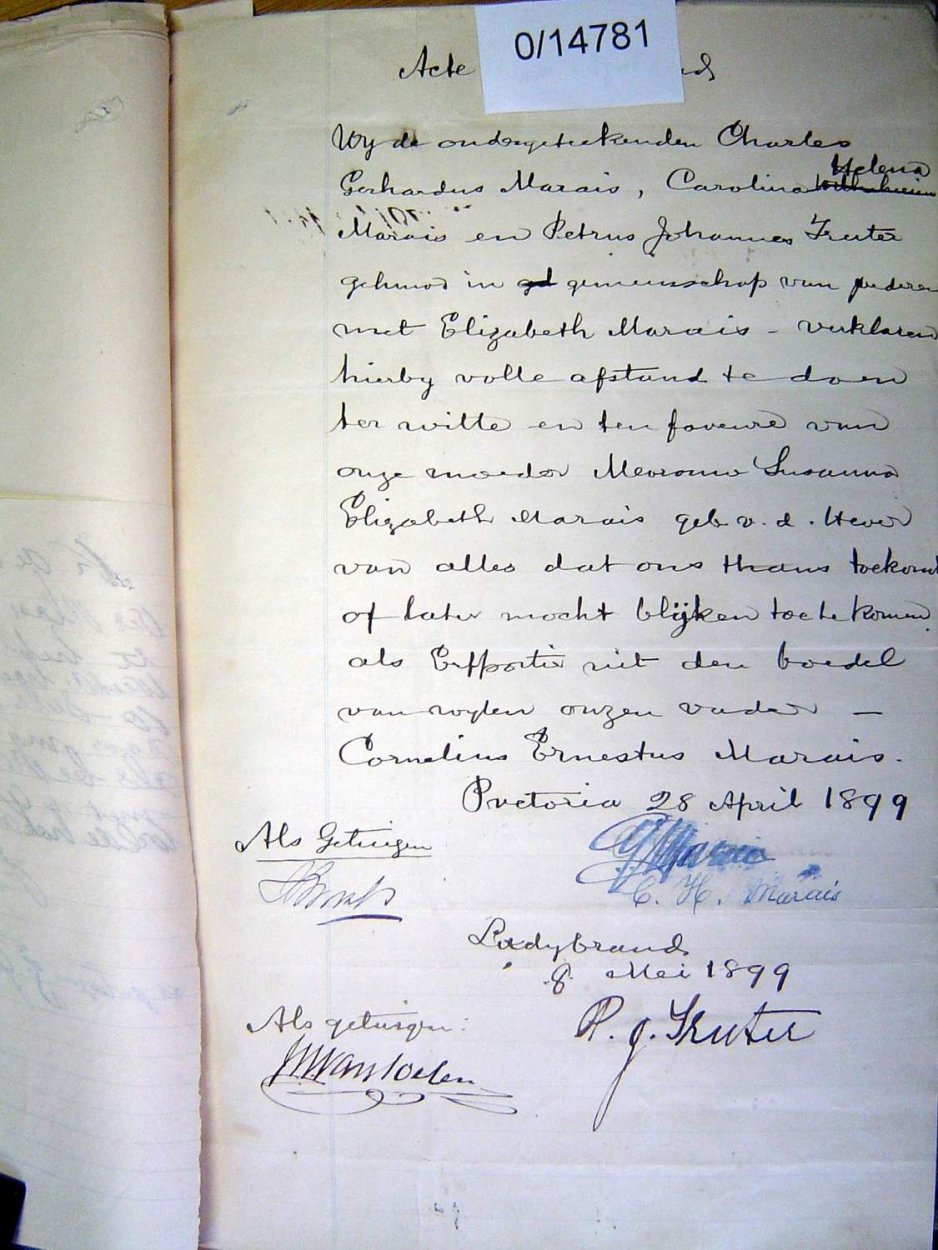 0/14781
Acte
Wy de ondergeteekenden Charles
Gerhardus Marais, Carolina Helena
Marais en Petrus Johannes Truter
gehuwd in gemeenschap van goederen
met Elizabeth Marais - verklaren
hierby volle afstand te doen
ter witte en ten faveure van
onze moeder Mevrouw Susanna
Elizabeth Marais geb. v. d. Hever
van alles dat ons thans toekomt
of later mocht blijken toe te komen
als Erfportie uit den boedel
van wylen onzen vader —
Cornelius Ernestus Marais.
Pretoria 28 April 1899
Als Getuigen
C. H. Marais
Ladybrand
8 Mei 1899
Als getuigen:
P. J. Truter